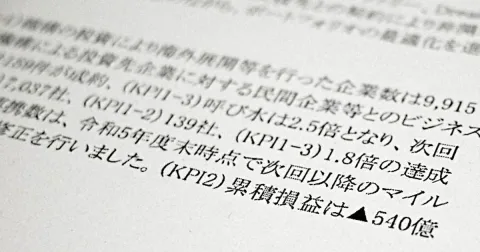 ポートフォリオの最適化を進
機構の投資により海外展開等を行った企業数は9,915
機構による投資先企業に対する民間企業等とのビジネス
169件が成約、(KPI1-3)呼び水は2.5倍となり、次回
17,037社、(KPI1-2)139社、(KPI1-3)1.8倍の達成
は、令和5年度末時点で次回以降のマイル
修正を行いました。(KPI2)累積損益は▲540億